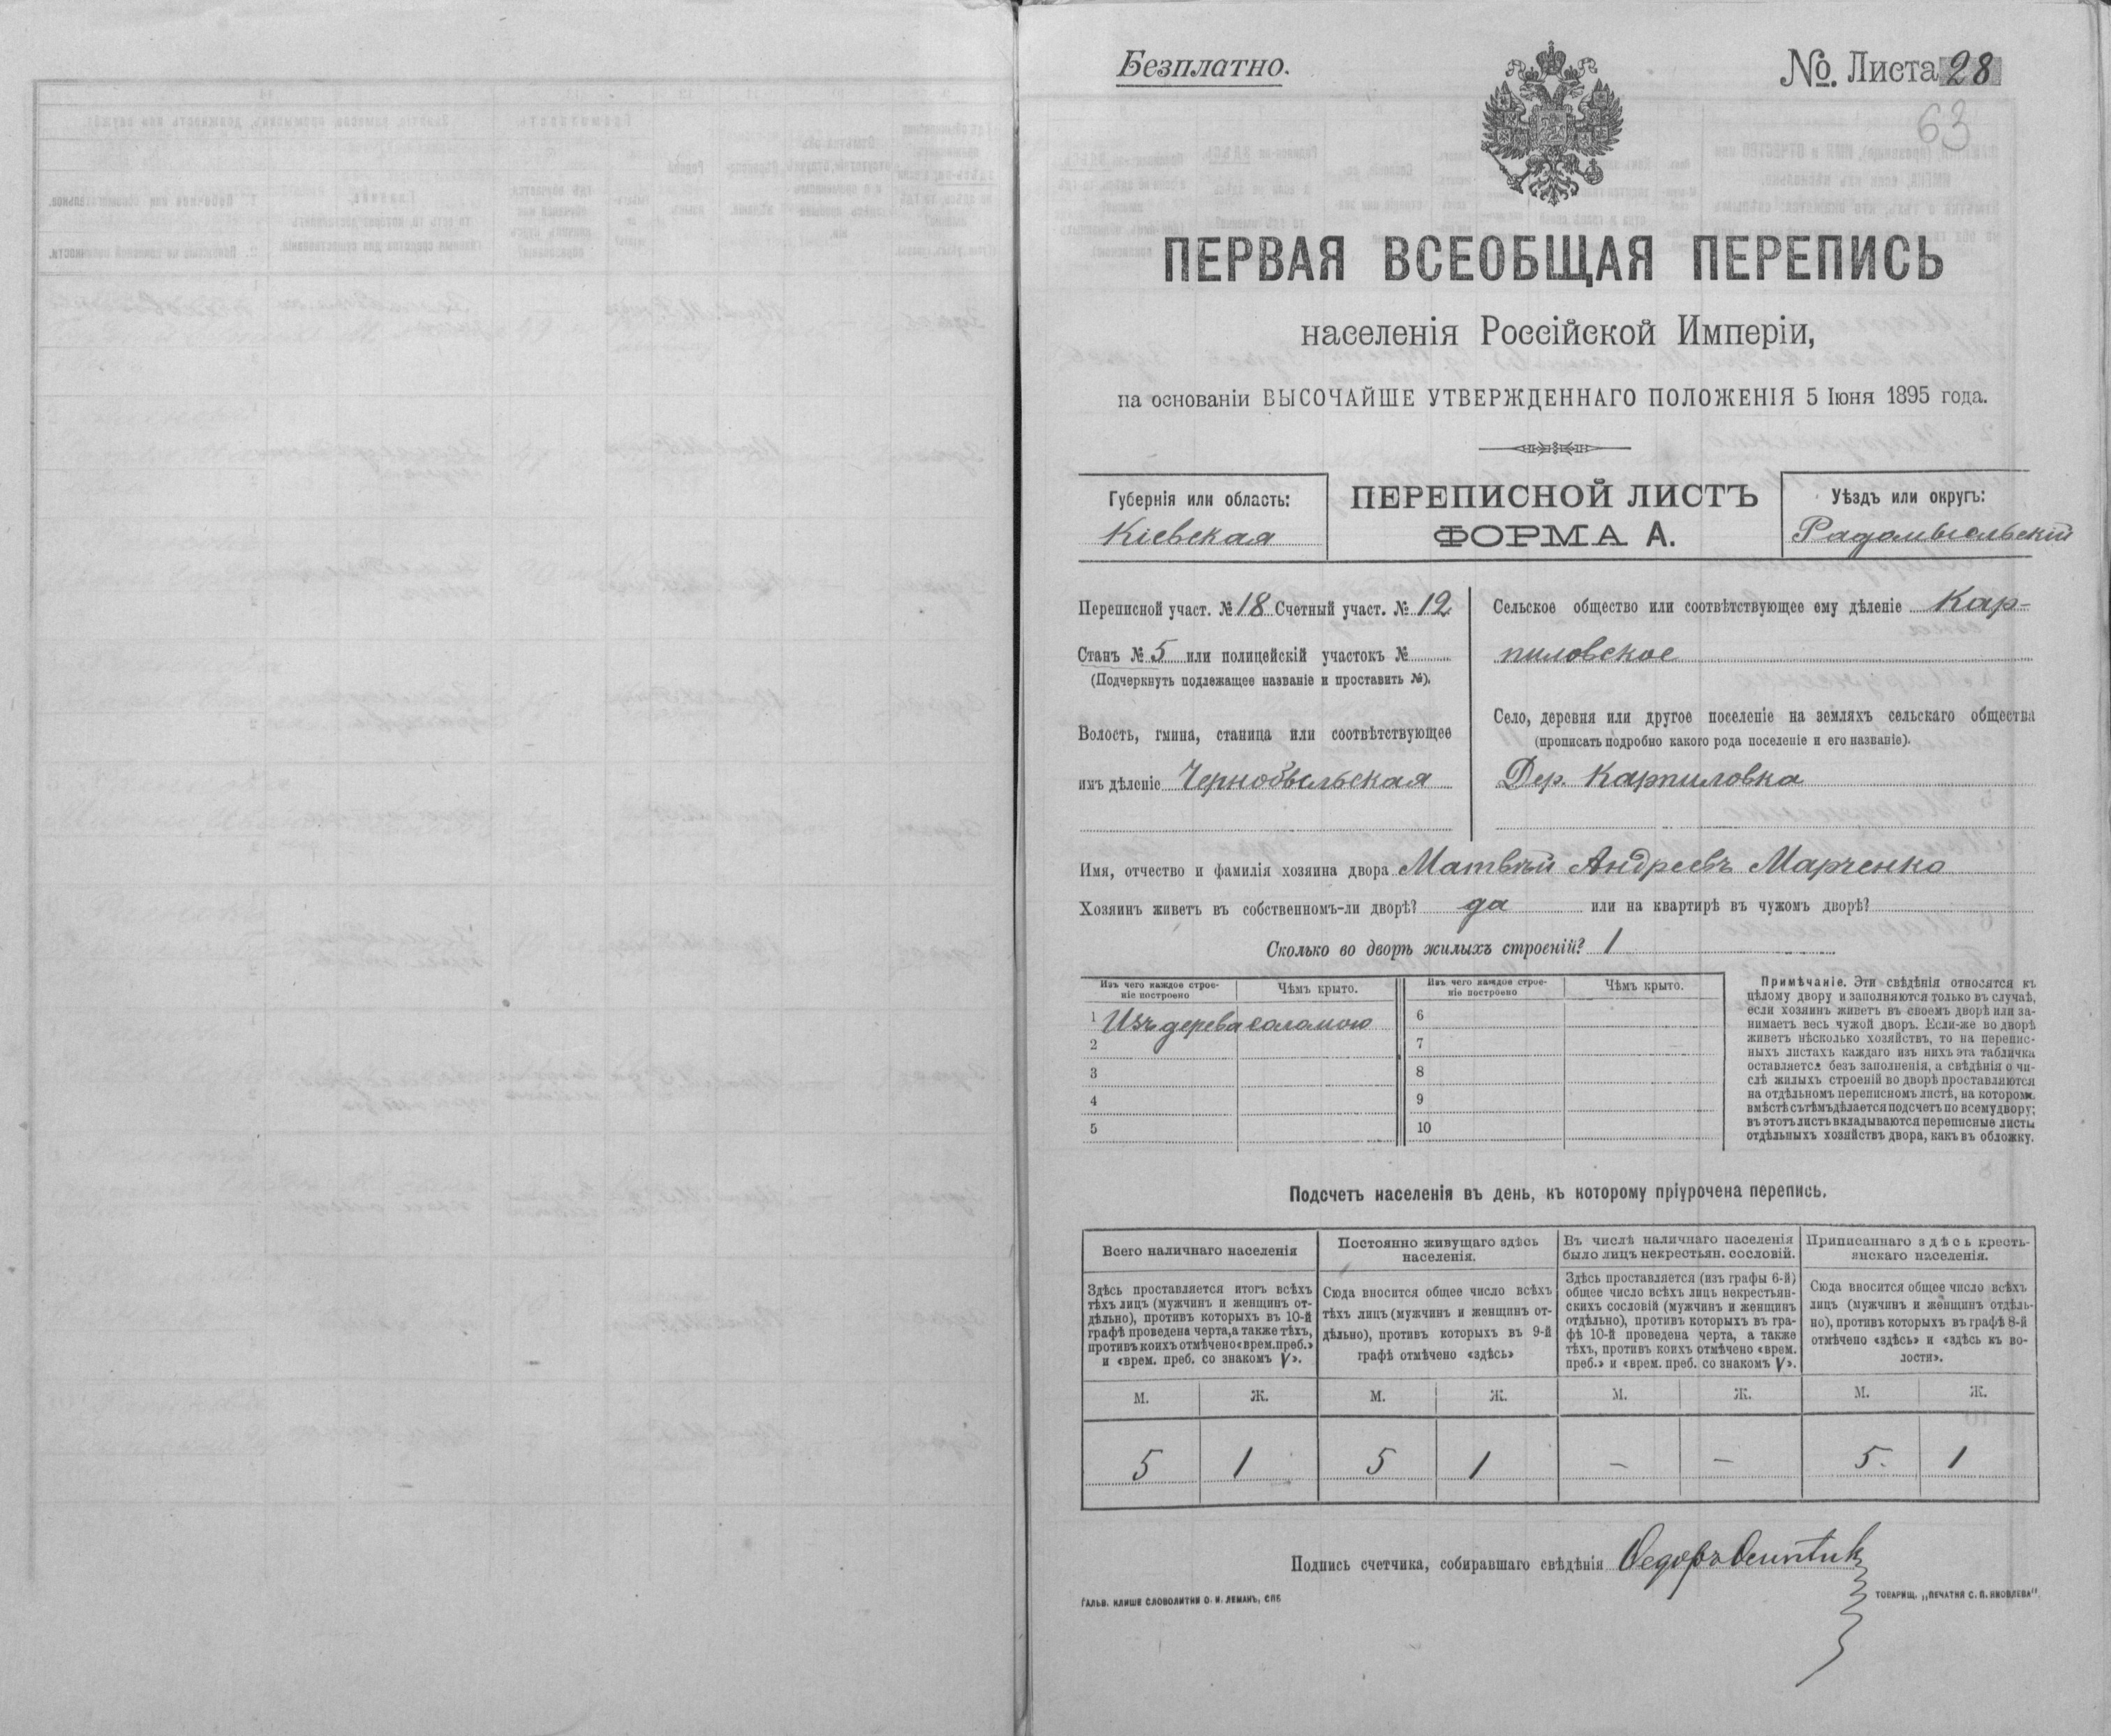 Безплатно.
№. Листа 28
63
ПЕРВАЯ ВСЕОБЩАЯ ПЕРЕПИСЬ
населенія Россійской Имперіи,
на основаніи ВЫСОЧАЙШЕ УТВЕРЖДЕННАГО ПОЛОЖЕНІЯ 5 Іюня 1895 года.
Губернія или область:
Кіевская
ПЕРЕПИСНОЙ ЛИСТЪ
ФОРМА А.
Уѣздъ или округъ:
Радомысльскій
Переписной участ. № 18 Счетный участ. № 12
Станъ № 5 или полицейскій участокъ №
(Подчеркнуть подлежащее названіе и проставить №).
Волость, гмина, станица или соотвѣтствующее
имъ дѣленіе Чернобыльская
Сельское общество или соотвѣтствующее ему дѣленіе Кар-
пиловское
Село, деревня или другое поселеніе на земляхъ сельскаго общества
(прописать подробно какого рода поселеніе и его названіе).
Дер. Карпиловка
Имя, отчество и фамилія хозяина двора Матвѣй Андреевъ Марченко
Хозяинъ живетъ въ собственномъ-ли дворѣ? да или на квартирѣ въ чужомъ дворѣ?
Сколько во дворѣ жилыхъ строеній? 1
Изъ чего каждое строе-
ніе построено
Чѣмъ крыто.
Изъ чего каждое строе-
ніе построено
Чѣмъ крыто.
1 Изъ дерева соломою
2
3
4
5
6
7
8
9
10
Примѣчаніе. Эти свѣдѣнія относятся къ
цѣлому двору и заполняются только въ случаѣ,
если хозяинъ живетъ въ своемъ дворѣ или за-
нимаетъ весь чужой дворъ. Если-же во дворѣ
живетъ нѣсколько хозяйствъ, то на перепис-
ныхъ листахъ каждаго изъ нихъ эта табличка
оставляется безъ заполненія, а свѣдѣнія о чи-
слѣ жилыхъ строеній во дворѣ проставляются
на отдѣльномъ переписномъ листѣ, на которомъ
вмѣстѣ съ тѣмъ дѣлается подсчетъ по всему двору;
въ этотъ листъ вкладываются переписные листы
отдѣльныхъ хозяйствъ двора, какъ въ обложку.
Подсчетъ населенія въ день, къ которому пріурочена перепись.
Всего наличнаго населенія
Постоянно живущаго здѣсь
населенія.
Въ числѣ наличнаго населенія
было лицъ некрестьян. сословій.
Приписаннаго здѣсь кресть-
янскаго населенія.
Здѣсь проставляется итогъ всѣхъ
тѣхъ лицъ (мужчинъ и женщинъ от-
дѣльно), противъ которыхъ въ 10-й
графѣ проведена черта, а также тѣхъ,
противъ коихъ отмѣчено «врем. преб.»
и «врем. преб. со знакомъ V».
Сюда вносится общее число всѣхъ
тѣхъ лицъ (мужчинъ и женщинъ от-
дѣльно), противъ которыхъ въ 9-й
графѣ отмѣчено «здѣсь»
Здѣсь проставляется (изъ графы 6-й)
общее число всѣхъ лицъ некрестьян-
скихъ сословій (мужчинъ и женщинъ
отдѣльно), противъ которыхъ въ гра-
фѣ 10-й проведена черта, а также
тѣхъ, противъ коихъ отмѣчено «врем.
преб.» и «врем. преб. со знакомъ V».
Сюда вносится общее число всѣхъ
лицъ (мужчинъ и женщинъ отдѣль-
но), противъ которыхъ въ графѣ 8-й
отмѣчено «здѣсь» и «здѣсь къ во-
лости».
М. Ж. М. Ж. М. Ж. М. Ж.
5 1 5 1 – – 5. 1
Подпись счетчика, собиравшаго свѣдѣнія Ѳедоръ
ГАЛЬВ. КЛИШЕ СЛОВОЛИТНИ О. И. ЛЕМАНЪ, СПБ
ТОВАРИЩ. „ПЕЧАТНЯ С. П. ЯКОВЛЕВА".